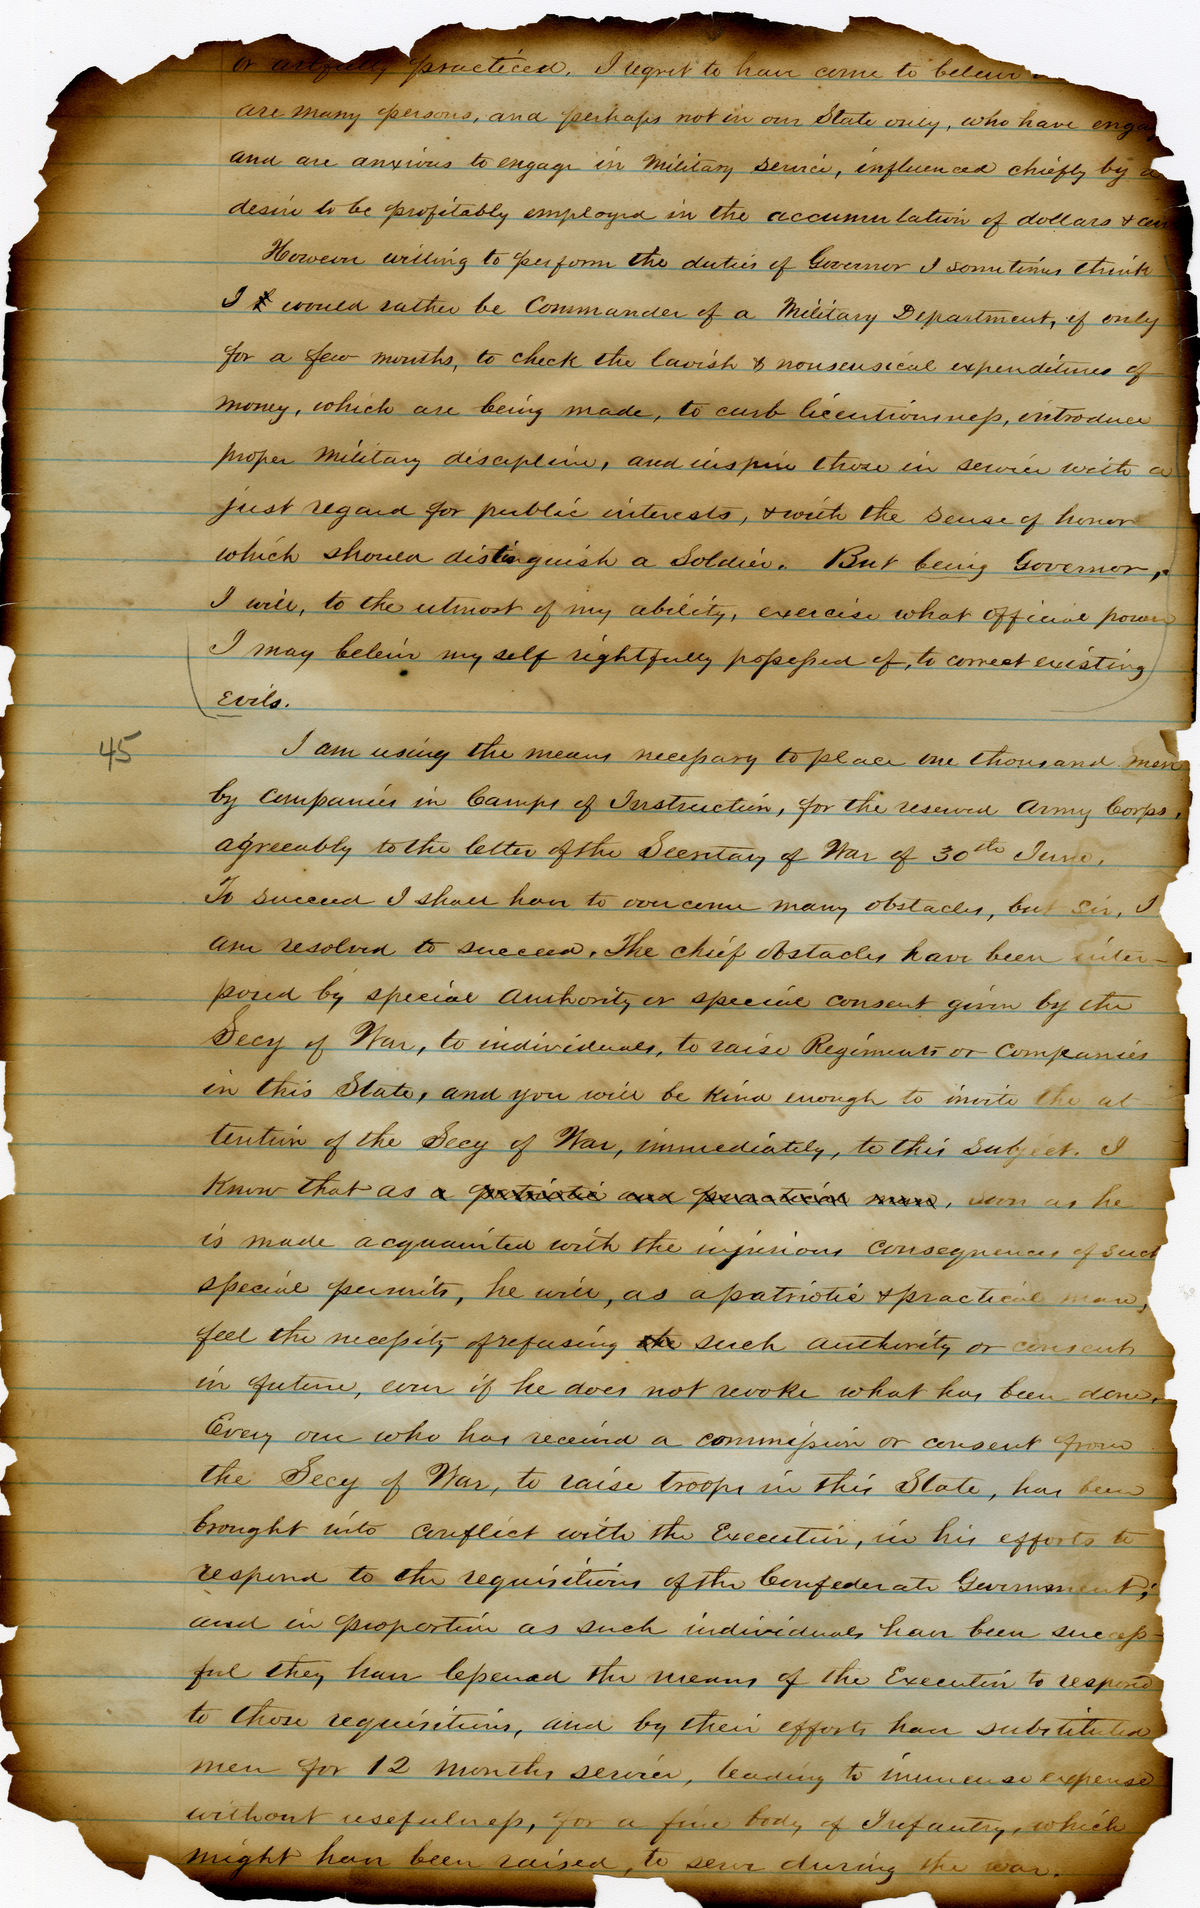 or artfully practiced. I regret to have come to believe
are many persons, and perhaps not in our State only, who have engag
and are anxious to engage in Military service, influenced chiefly by a
desire to be profitably employed in the accumulation of dollars & cen
However willing to perform the duties of Governor I sometimes think
I would rather be Commander of a Military Department, if only
for a few months, to check the lavish & nonsensical expenditures of
money, which are being made, to curb licentiousness, introduce
proper Military discipline, and inspire those in service with a
just regard for public interests, & with the sense of honor
which should distinguish a Soldier. But being Governor,
I will, to the utmost of my ability, exercise what official power
I may believe myself rightfully possessed of, to correct existing
Evils.
45
I am using the means necessary to place one thousand men
by Companies in Camps of Instruction, for the reserved Army Corps,
agreeably to the letter of the Secretary of War of 30th June.
To succeed I shall have to overcome many obstacles, but sir, I
am resolved to succeed. The chief obstacles have been inter-
posed by special authority or special consent given by the
Secy of War, to individuals, to raise Regiments or Companies
in this State, and you will be kind enough to invite the at-
tention of the Secy of War, immediately, to this subject. I
know that as a patriotic and practical man, soon as he
is made acquainted with the injurious consequences of such
special permits, he will, as a patriotic & practical man,
feel the necessity of refusing the such authority or consent
in future, even if he does not revoke what has been done.
Every one who has received a commission or consent from
the Secy of War, to raise troops in this State, has been
brought into conflict with the Executive, in his efforts to
respond to the requisitions of the Confederate Government;
and in proportion as such individuals have been success-
ful they have lessened the means of the Executive to respond
to those requisitions, and by their efforts have substituted
men for 12 months service, leading to immense expense
without usefulness, for a fine body of Infantry, which
might have been raised, to serve during the war.